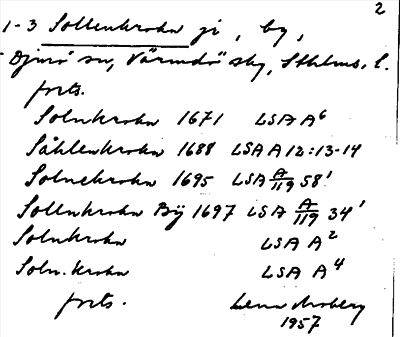 2
1-3 Sollenkroka ji, by,
Djurö sn, Värmdö skg, Sthlms. l.
forts.
Solnkroka 1671 LSA A6
Såhlenkroka 1688 LSA A 12:13-14
Solnekroka 1695 LSA A/119 58'
Sollenkroka Bÿ 1697 LSA A/119 34'
Solnkroka LSA A2
Soln. kroka LSA A4
forts. Lena Moberg
1957